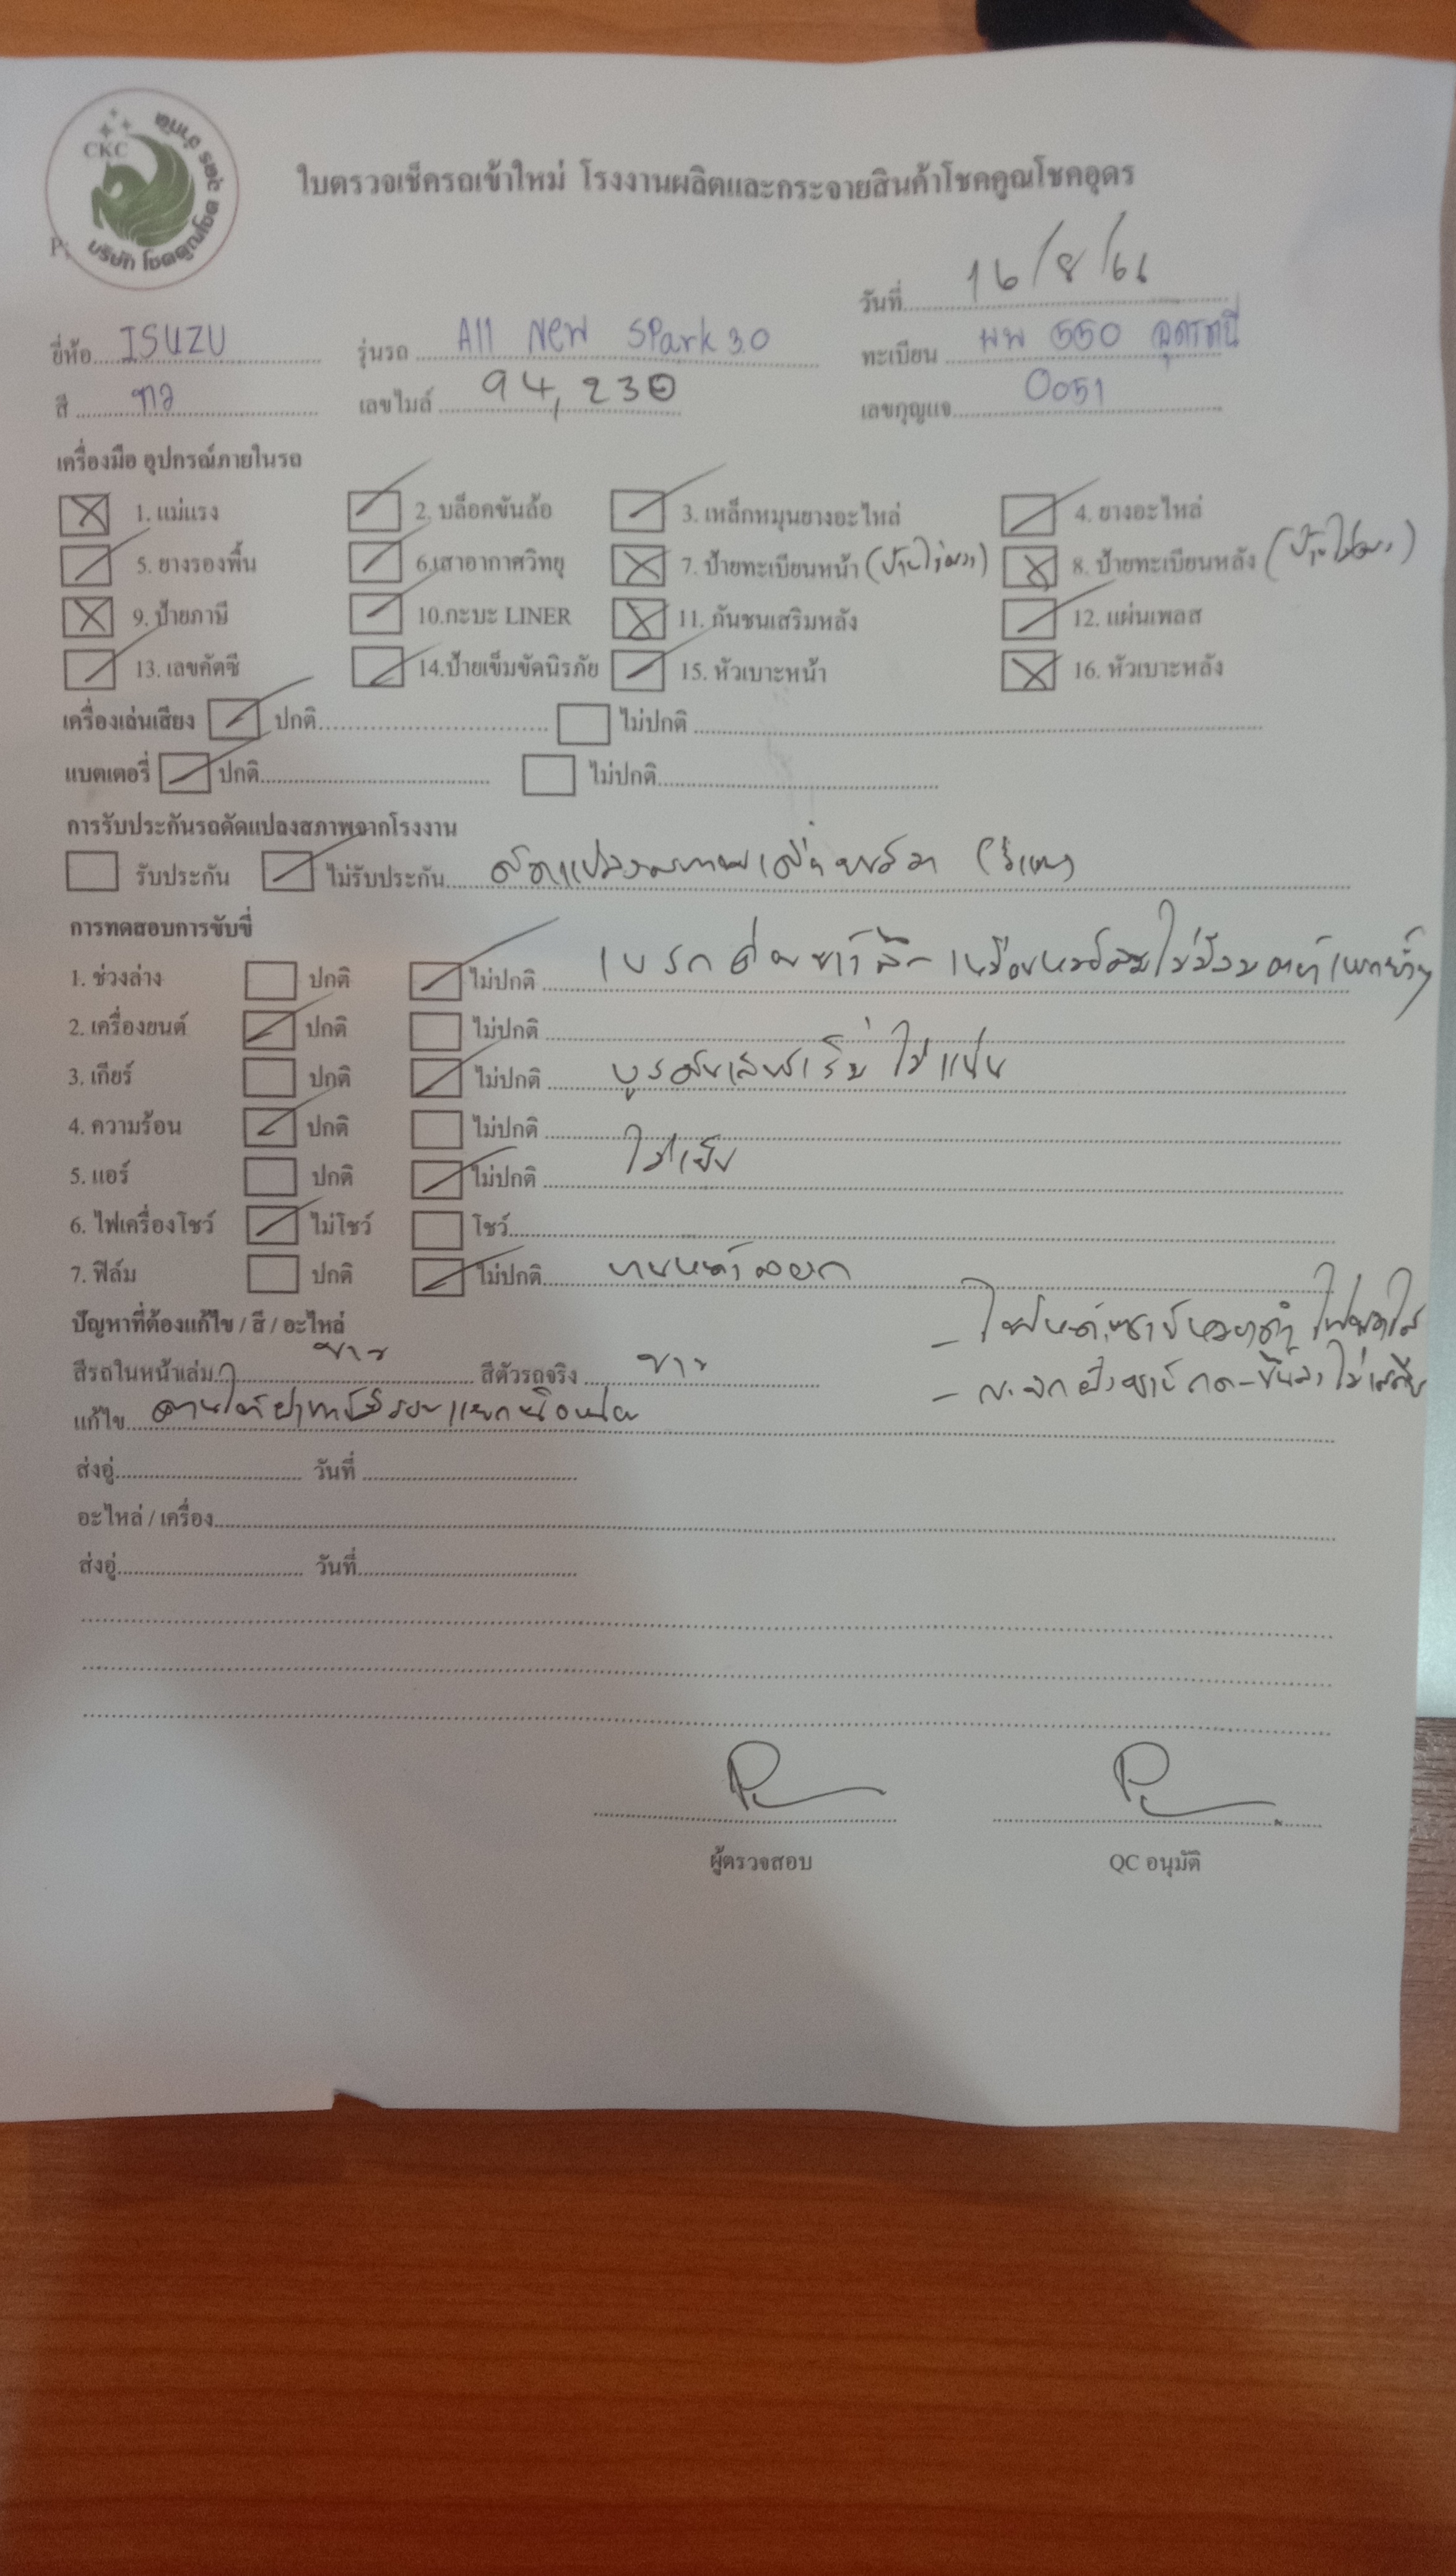 CKC
บริษัท โชคคูณโชค อุดร จำกัด
ใบตรวจเช็ครถเข้าใหม่ โรงงานผลิตและกระจายสินค้าโชคคูณโชคอุดร
วันที่ 16/8/66
ยี่ห้อ ISUZU รุ่นรถ All New SPark 3.0 ทะเบียน ผพ 550 อุดรธานี
สี ขาว เลขไมล์ 94,230 เลขกุญแจ 0051
เครื่องมือ อุปกรณ์ภายในรถ
1. แม่แรง 2. บล็อคขันล้อ 3. เหล็กหมุนยางอะไหล่ 4. ยางอะไหล่
5. ยางรองพื้น 6.เสาอากาศวิทยุ 7. ป้ายทะเบียนหน้า 8. ป้ายทะเบียนหลัง
9. ป้ายภาษี 10.กะบะ LINER 11. กันชนเสริมหลัง 12. แผ่นเพลส
13. เลขคัตซี 14.ป้ายเข็มขัดนิรภัย 15. หัวเบาะหน้า 16. หัวเบาะหลัง
เครื่องเล่นเสียง ปกติ ไม่ปกติ
แบตเตอรี่ ปกติ ไม่ปกติ
การรับประกันรถดัดแปลงสภาพจากโรงงาน
รับประกัน ไม่รับประกัน ดัดแปลงสภาพ
การทดสอบการขับขี่
1. ช่วงล่าง ปกติ ไม่ปกติ เบรค
2. เครื่องยนต์ ปกติ ไม่ปกติ
3. เกียร์ ปกติ ไม่ปกติ ไม่แน่น
4. ความร้อน ปกติ ไม่ปกติ
5. แอร์ ปกติ ไม่ปกติ ไม่เย็น
6. ไฟเครื่องโชว์ ไม่โชว์ โชว์
7. ฟิล์ม ปกติ ไม่ปกติ บานหน้าลอก
ปัญหาที่ต้องแก้ไข / สี / อะไหล่
สีรถในหน้าเล่ม ขาว สีตัวรถจริง ขาว
แก้ไข
ส่งอู่ วันที่
อะไหล่ / เครื่อง
ส่งอู่ วันที่
ผู้ตรวจสอบ QC อนุมัติ